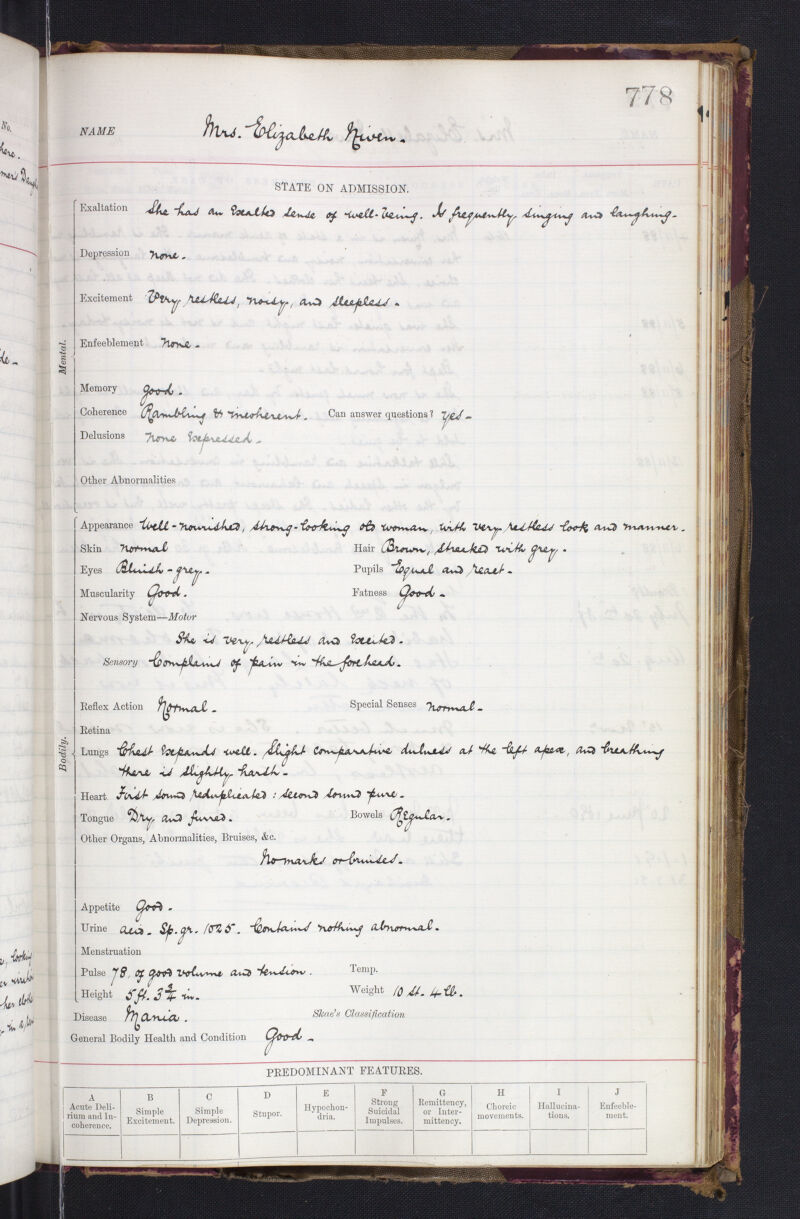 778
NAME Mrs. Elizabeth Niven.
STATE ON ADMISSION.
Mental.
Exaltation She has an Exalted sense of well-being. Is frequently singing and laughing.
Depression None.
Excitement Very restless, noisy, and sleepless.
Enfeeblement None.
Memory Good.
Coherence Rambling & incoherent. Can answer questions? Yes.
Delusions None Expressed.
Other Abnormalities
Bodily.
Appearance Well-nourished, strong-looking old woman, with very restless look and manner.
Skin Normal Hair Brown, streaked with grey.
Eyes Bluish-grey. Pupils Equal and react.
Muscularity Good. Fatness Good.
Nervous System—Motor
She is very restless and Excited.
Sensory Complains of pain in the forehead.
Reflex Action Normal. Special Senses Normal.
Retina
Lungs Chest Expands well. Slight comparative dulness at the left apex, and breathing
there is slightly harsh.
Heart First sound reduplicated: second sound pure.
Tongue Dry and furred. Bowels Regular.
Other Organs, Abnormalities, Bruises, &c.
No marks or bruises.
Appetite Good.
Urine Acid. Sp. gr. 1025. Contains nothing abnormal.
Menstruation
Pulse 78, of good volume and tension. Temp.
Height 5 ft. 3 3/4 in. Weight 10 st. 4 lb.
Disease Mania. Skae's Classification
General Bodily Health and Condition Good.
PREDOMINANT FEATURES.
A Acute Delirium and Incoherence.
B Simple Excitement.
C Simple Depression.
D Stupor.
E Hypochondria.
F Strong Suicidal Impulses.
G Remittency, or Intermittency.
H Choreic movements.
I Hallucinations.
J Enfeeblement.